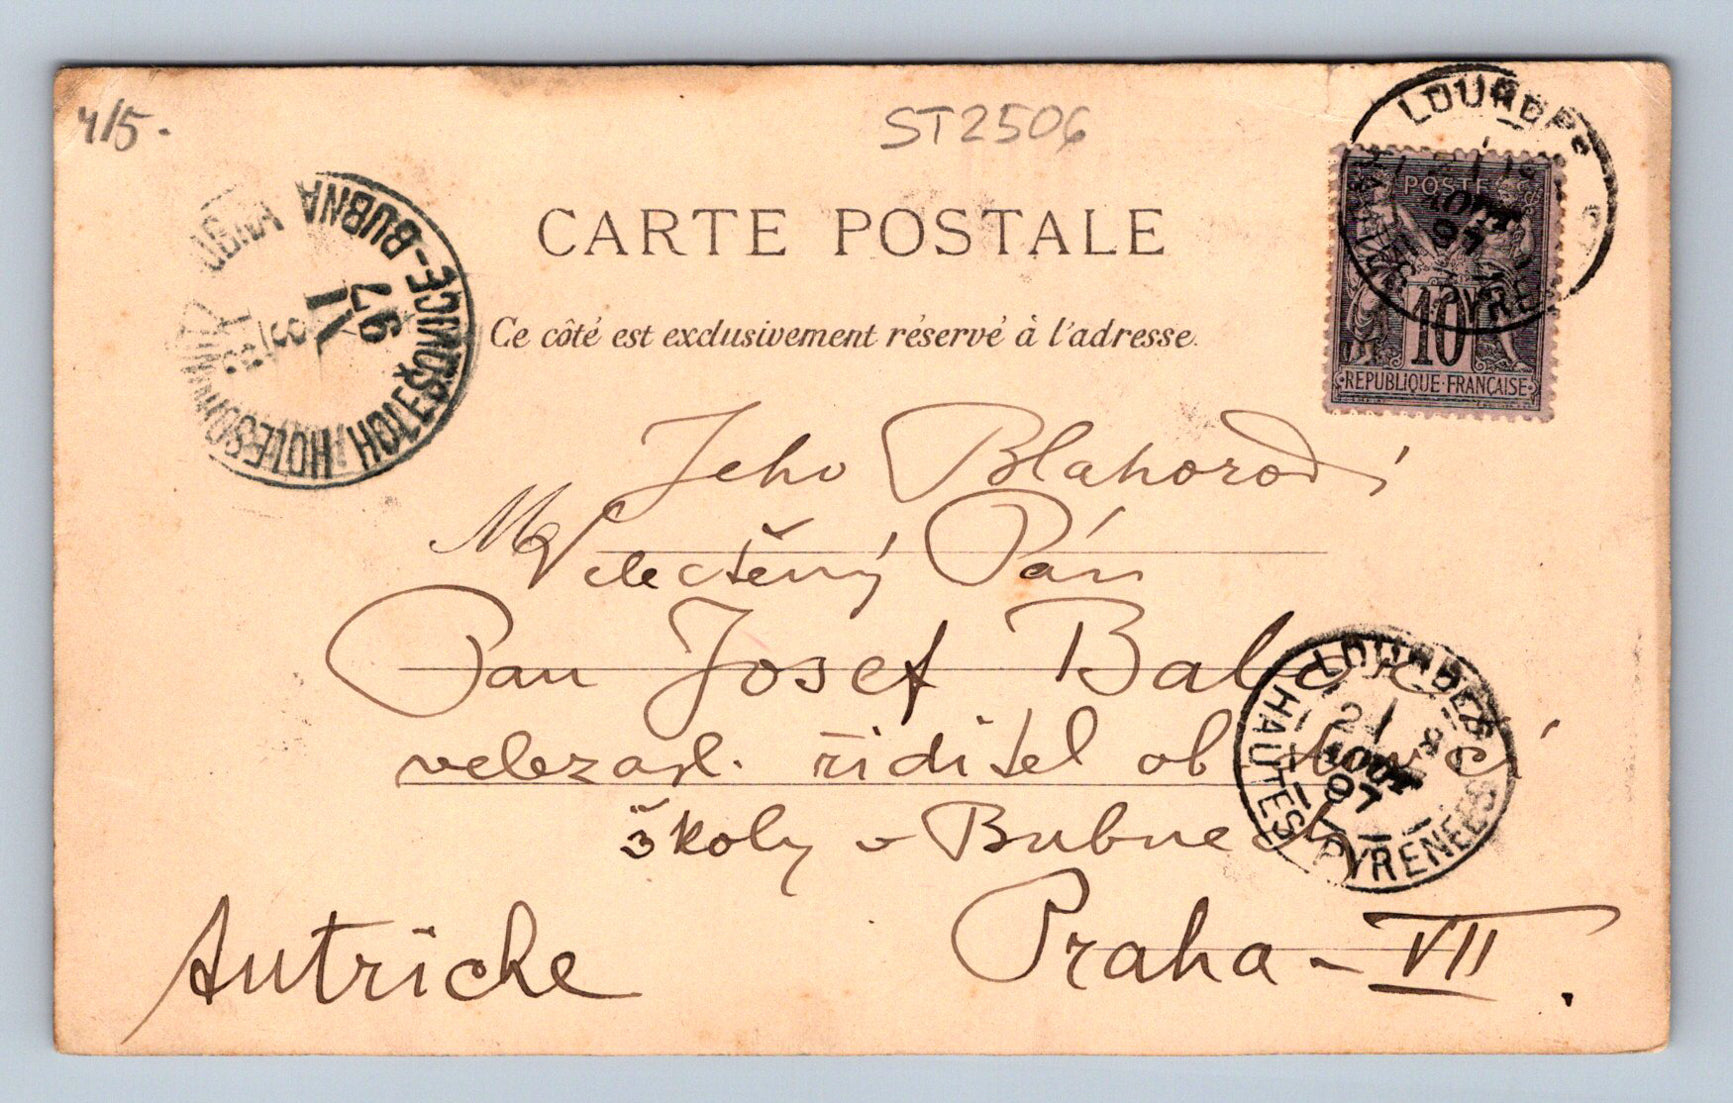 4/5.
ST2506
LOURDES
21
AOUT
97
HTES PYRE
POSTE
10
REPUBLIQUE FRANÇAISE
HOLEŠOVICE-BUBNA
HOLESO
97
CARTE POSTALE
Ce côté est exclusivement réservé à l'adresse.
Jeho Blahorodí
Velectěný Pán
Pan Josef Bal
velezasl. řiditel ob
školy v Bubne
Praha - VII.
Autriche
LOURDES
21
AOUT
97
HAUTES PYRENEES